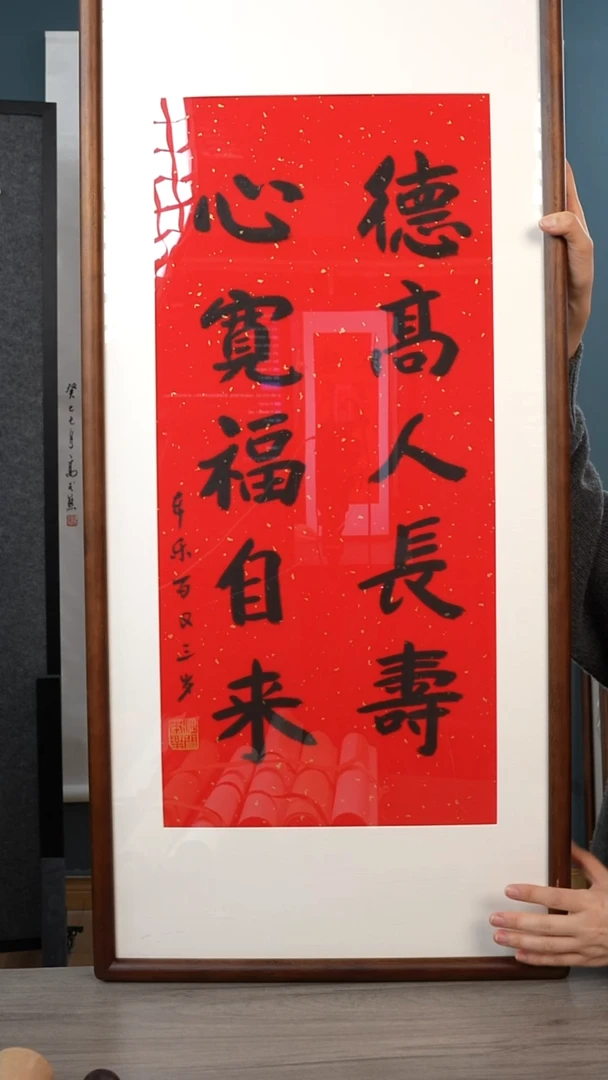 德高人長壽
心寬福自来
百又三岁